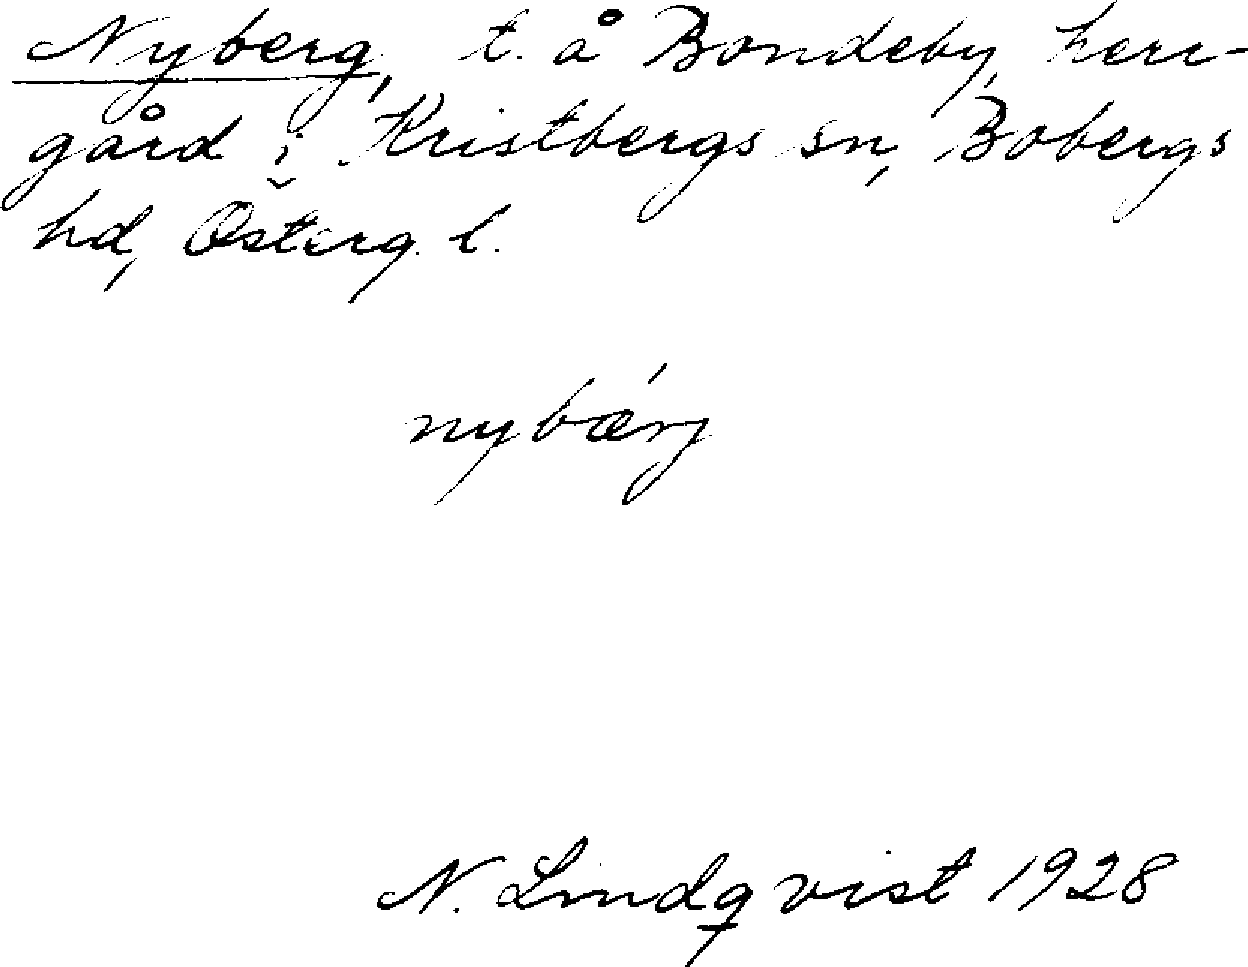 Nyberg, t. å Bondeby, herr-
gård i Kristbergs sn, Bobergs
hd, Österg. l.
nybǽrj
N. Lindqvist 1928